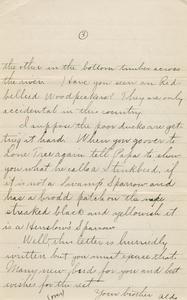 3
the other in the bottom timber across
the river. Have you seen an Red
bellied Woodpeckers? They are only
accidental in this country.
I suppose the poor ducks are get
ting it hard. When you go over to
Lone Tree again tell Papa to show
you what he calls a Stinkbird, if
it is not a Swamp Sparrow and
has a broad patch on the
streaked black and yellowish it
is a Henslow's Sparrow.
Well this letter is hurriedly
written but you must excuse that.
Many new birds for you and best
wishes for the rest
Your brother Aldo
(over)